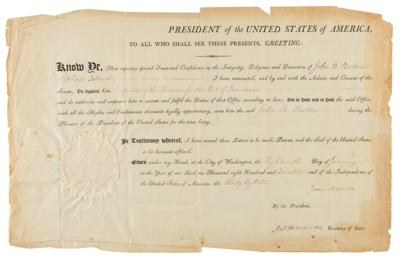 PRESIDENT of the UNITED STATES of AMERICA,
TO ALL WHO SHALL SEE THESE PRESENTS, GREETING:
Know Ye, That reposing special Trust and Confidence in the Integrity, Diligence and Discretion of John B
I have nominated, and by and with the Advice and Consent of the
Senate, Do Appoint him of the Revenue for the Port of
and do authorize and empower him to execute and fulfil the Duties of that Office according to law; And to Have and to Hold the said Office,
with all the Rights and Emoluments thereunto legally appertaining, unto him the said John B during the
Pleasure of the President of the United States for the time being.
In Testimony whereof, I have caused these Letters to be made Patent, and the Seal of the United
States to be hereunto affixed.
Given under my Hand, at the City of Washington, the Eighteenth Day of January
in the Year of our Lord one Thousand eight Hundred and and of the Independence of
the United States of America, the Thirty Eighth
James Madison
By the President,
Jas Monroe Secretary of State.